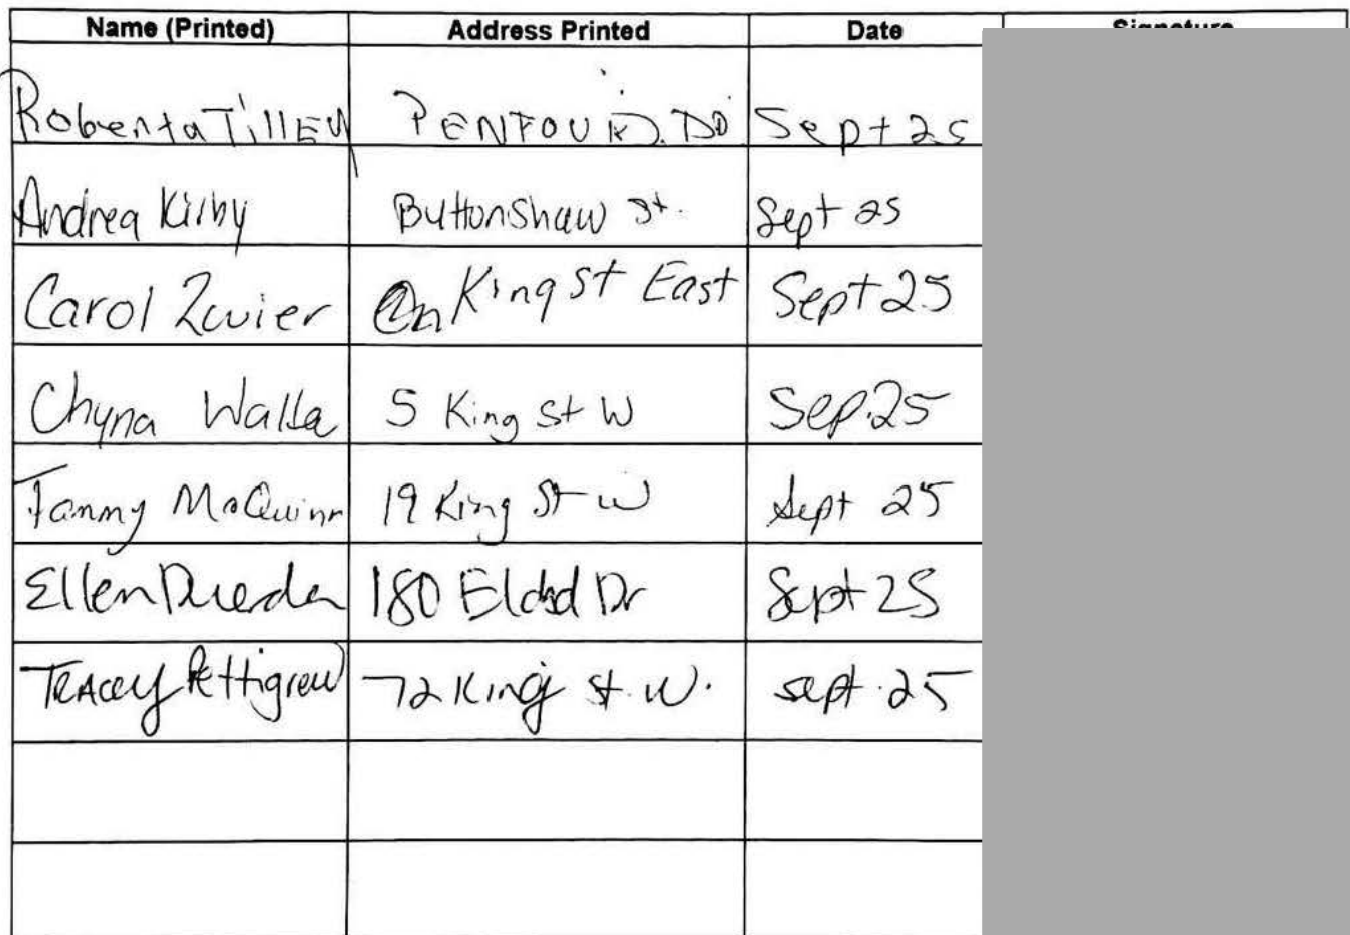 Name (Printed) Address Printed Date Signature
Roberta Tilley Sept 25
Andrea Kirby Buttonshaw St. Sept 25
Carol Zwier King St East Sept 25
Chyna Walla 5 King St W Sep.25
Tammy McQuinn 19 King St W Sept 25
Ellen 180 Eldad Dr Sept 25
Tracey Pettigrew 72 King St. W. Sept. 25